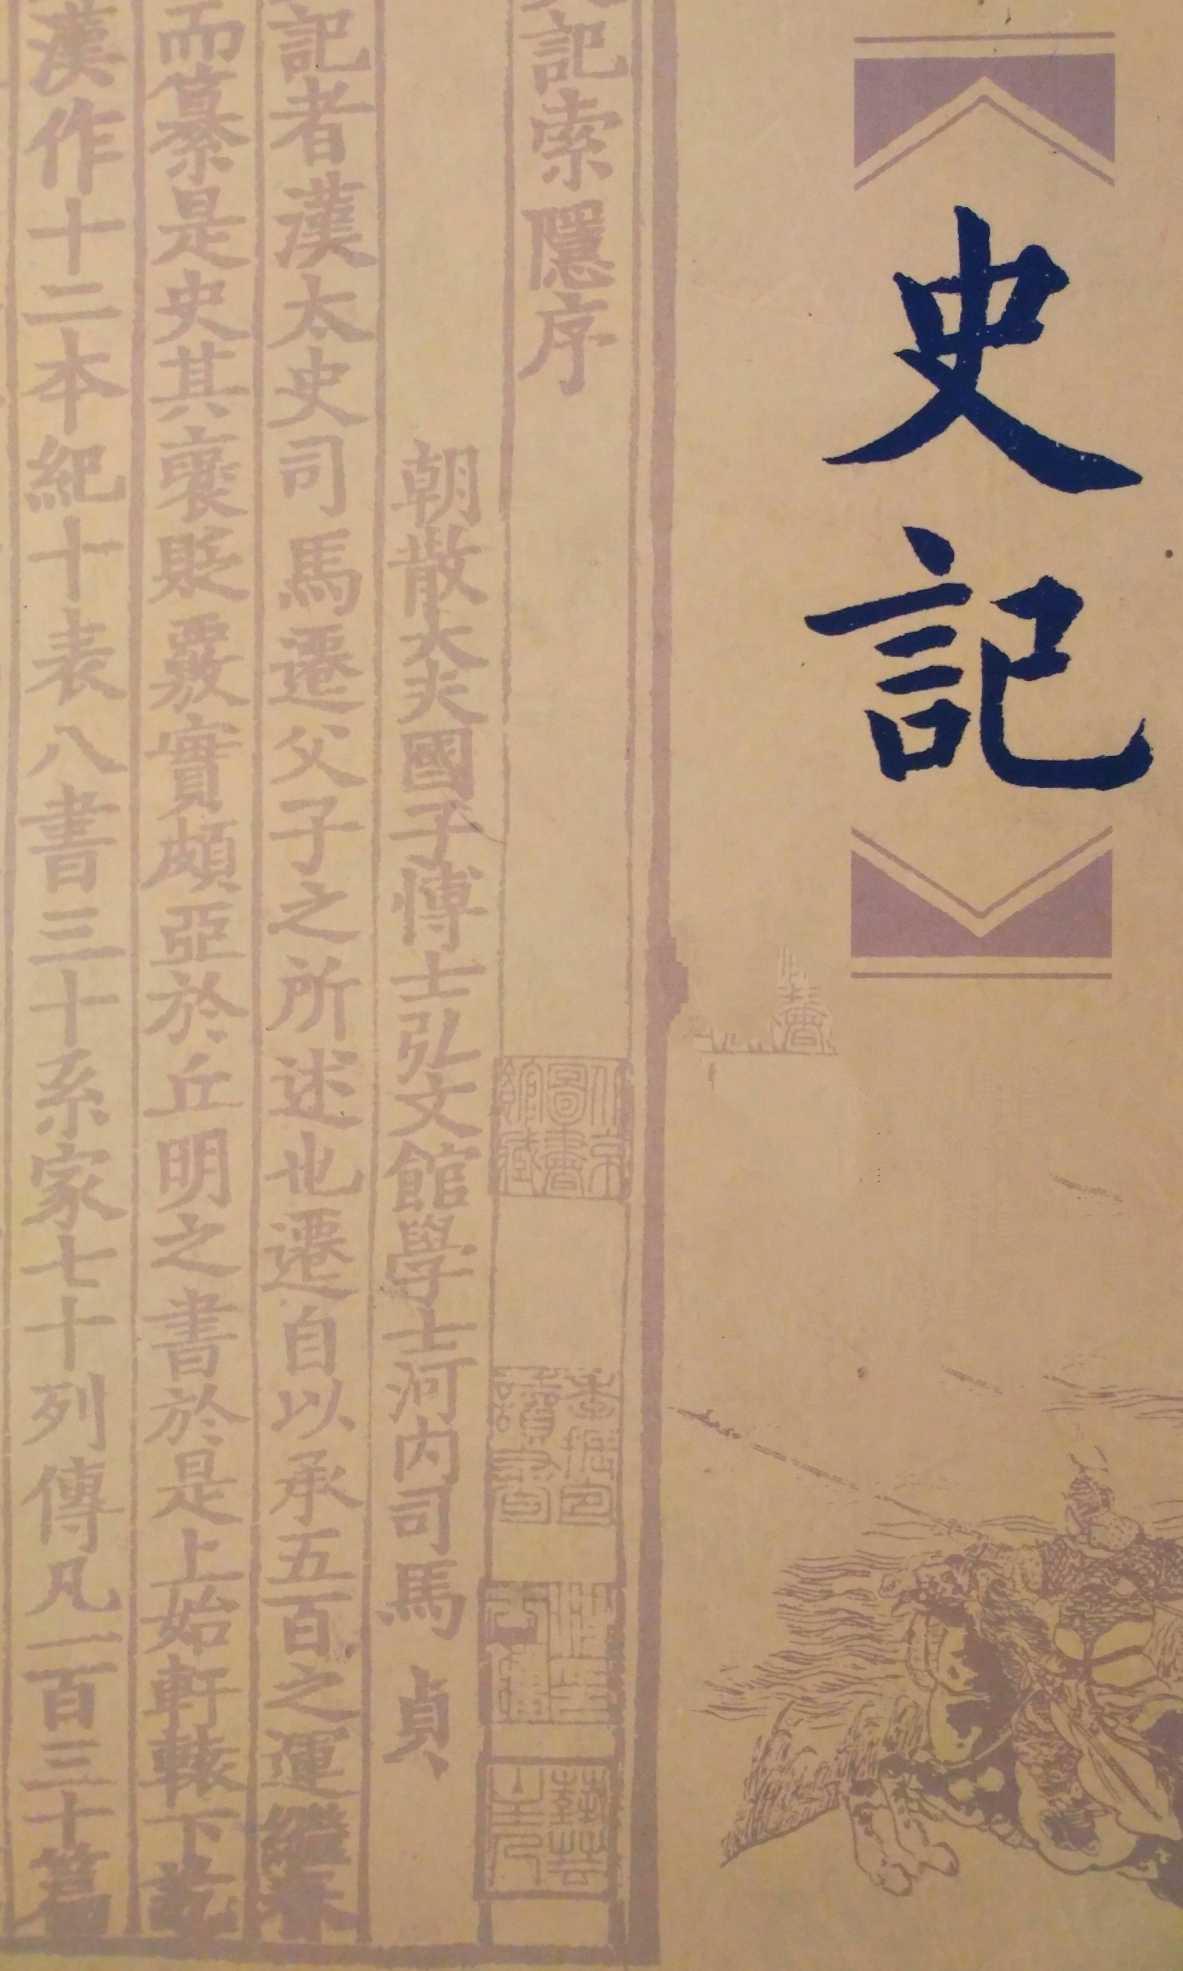 史記
記索隱序
朝散大夫國子博士弘文館學士河內司馬 貞
記者漢太史司馬遷父子之所述也遷自以承五百之運繼春
而纂是史其襃貶覈實頗亞於丘明之書於是上始軒轅下訖
漢作十二本紀十表八書三十系家七十列傳凡一百三十篇